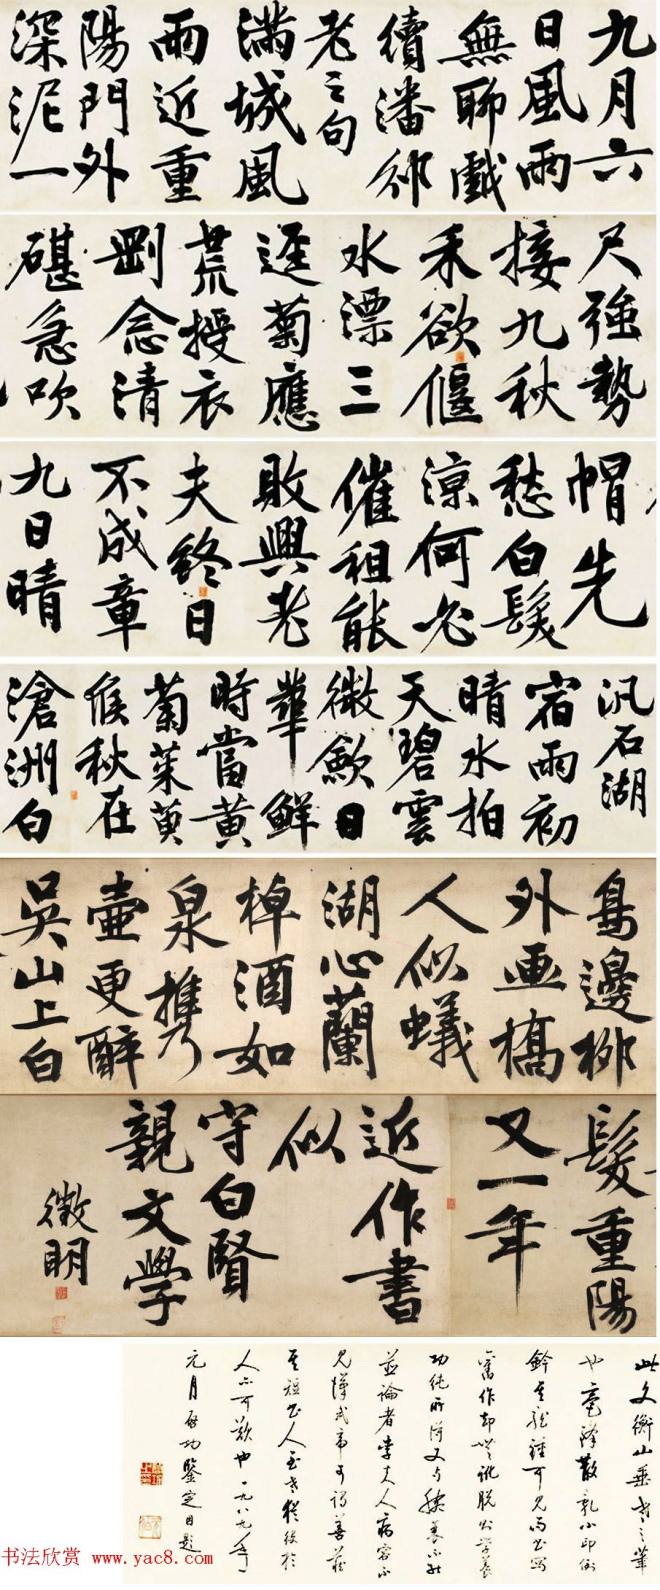 九月六
日風雨
無聊戲
續潘邠
老之句
滿城風
雨近重
陽門外
深泥一
尺強勢
接九秋
禾欲偃
水漂三
逕菊應
荒授衣
剛念清
碪急吹
帽先
愁白髮
涼何必
催租能
敗興老
夫終日
不成章
九日晴
汎石湖
宿雨初
晴水拍
天碧雲
微斂日
華鮮
時當黃
菊茱萸
候秋在
滄洲白
鳥邊柳
外畫橋
人似蟻
湖心蘭
棹酒如
泉攜
壺更醉
吳山上白
髮重陽
又一年
近作書
似
守白賢
親文學
徵明
此文衡山垂老之筆
也毫鋒散亂小印倒
鈐其龍鍾可見而書寫
舊作却無訛脫公學養
功純所得又與
並論者李夫人病容不
見漢武帝可謂善藏
其短書人至老猶役於
人亦可歎也一九八九年
元月啟功鑒定因題
书法欣赏 www.yac8.com